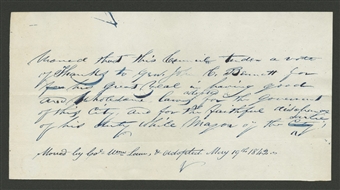 Moved that this Council tender a vote
of Thanks to Genl John C. Bennett for
his Great Zeal in having good
adopted
and Wholesome laws for the government
of this City, and for the faithful discharge
of his duty while Mayor of the
Moved by Wm Law, & adopted May 19th 1842